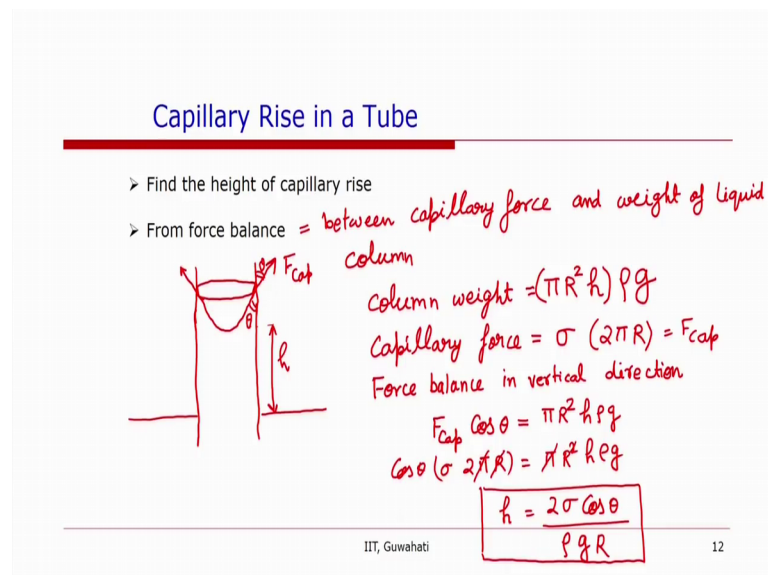 Capillary Rise in a Tube
➢ Find the height of capillary rise
➢ From force balance = between capillary force and weight of liquid
column
θ F_cap
θ
h
column weight = (πR²h) ρg
Capillary force = σ (2πR) = F_cap
Force balance in vertical direction
F_cap Cos θ = πR²hρg
Cos θ (σ 2πR) = πR²hρg
h = 2σ Cos θ / ρgR
IIT, Guwahati
12